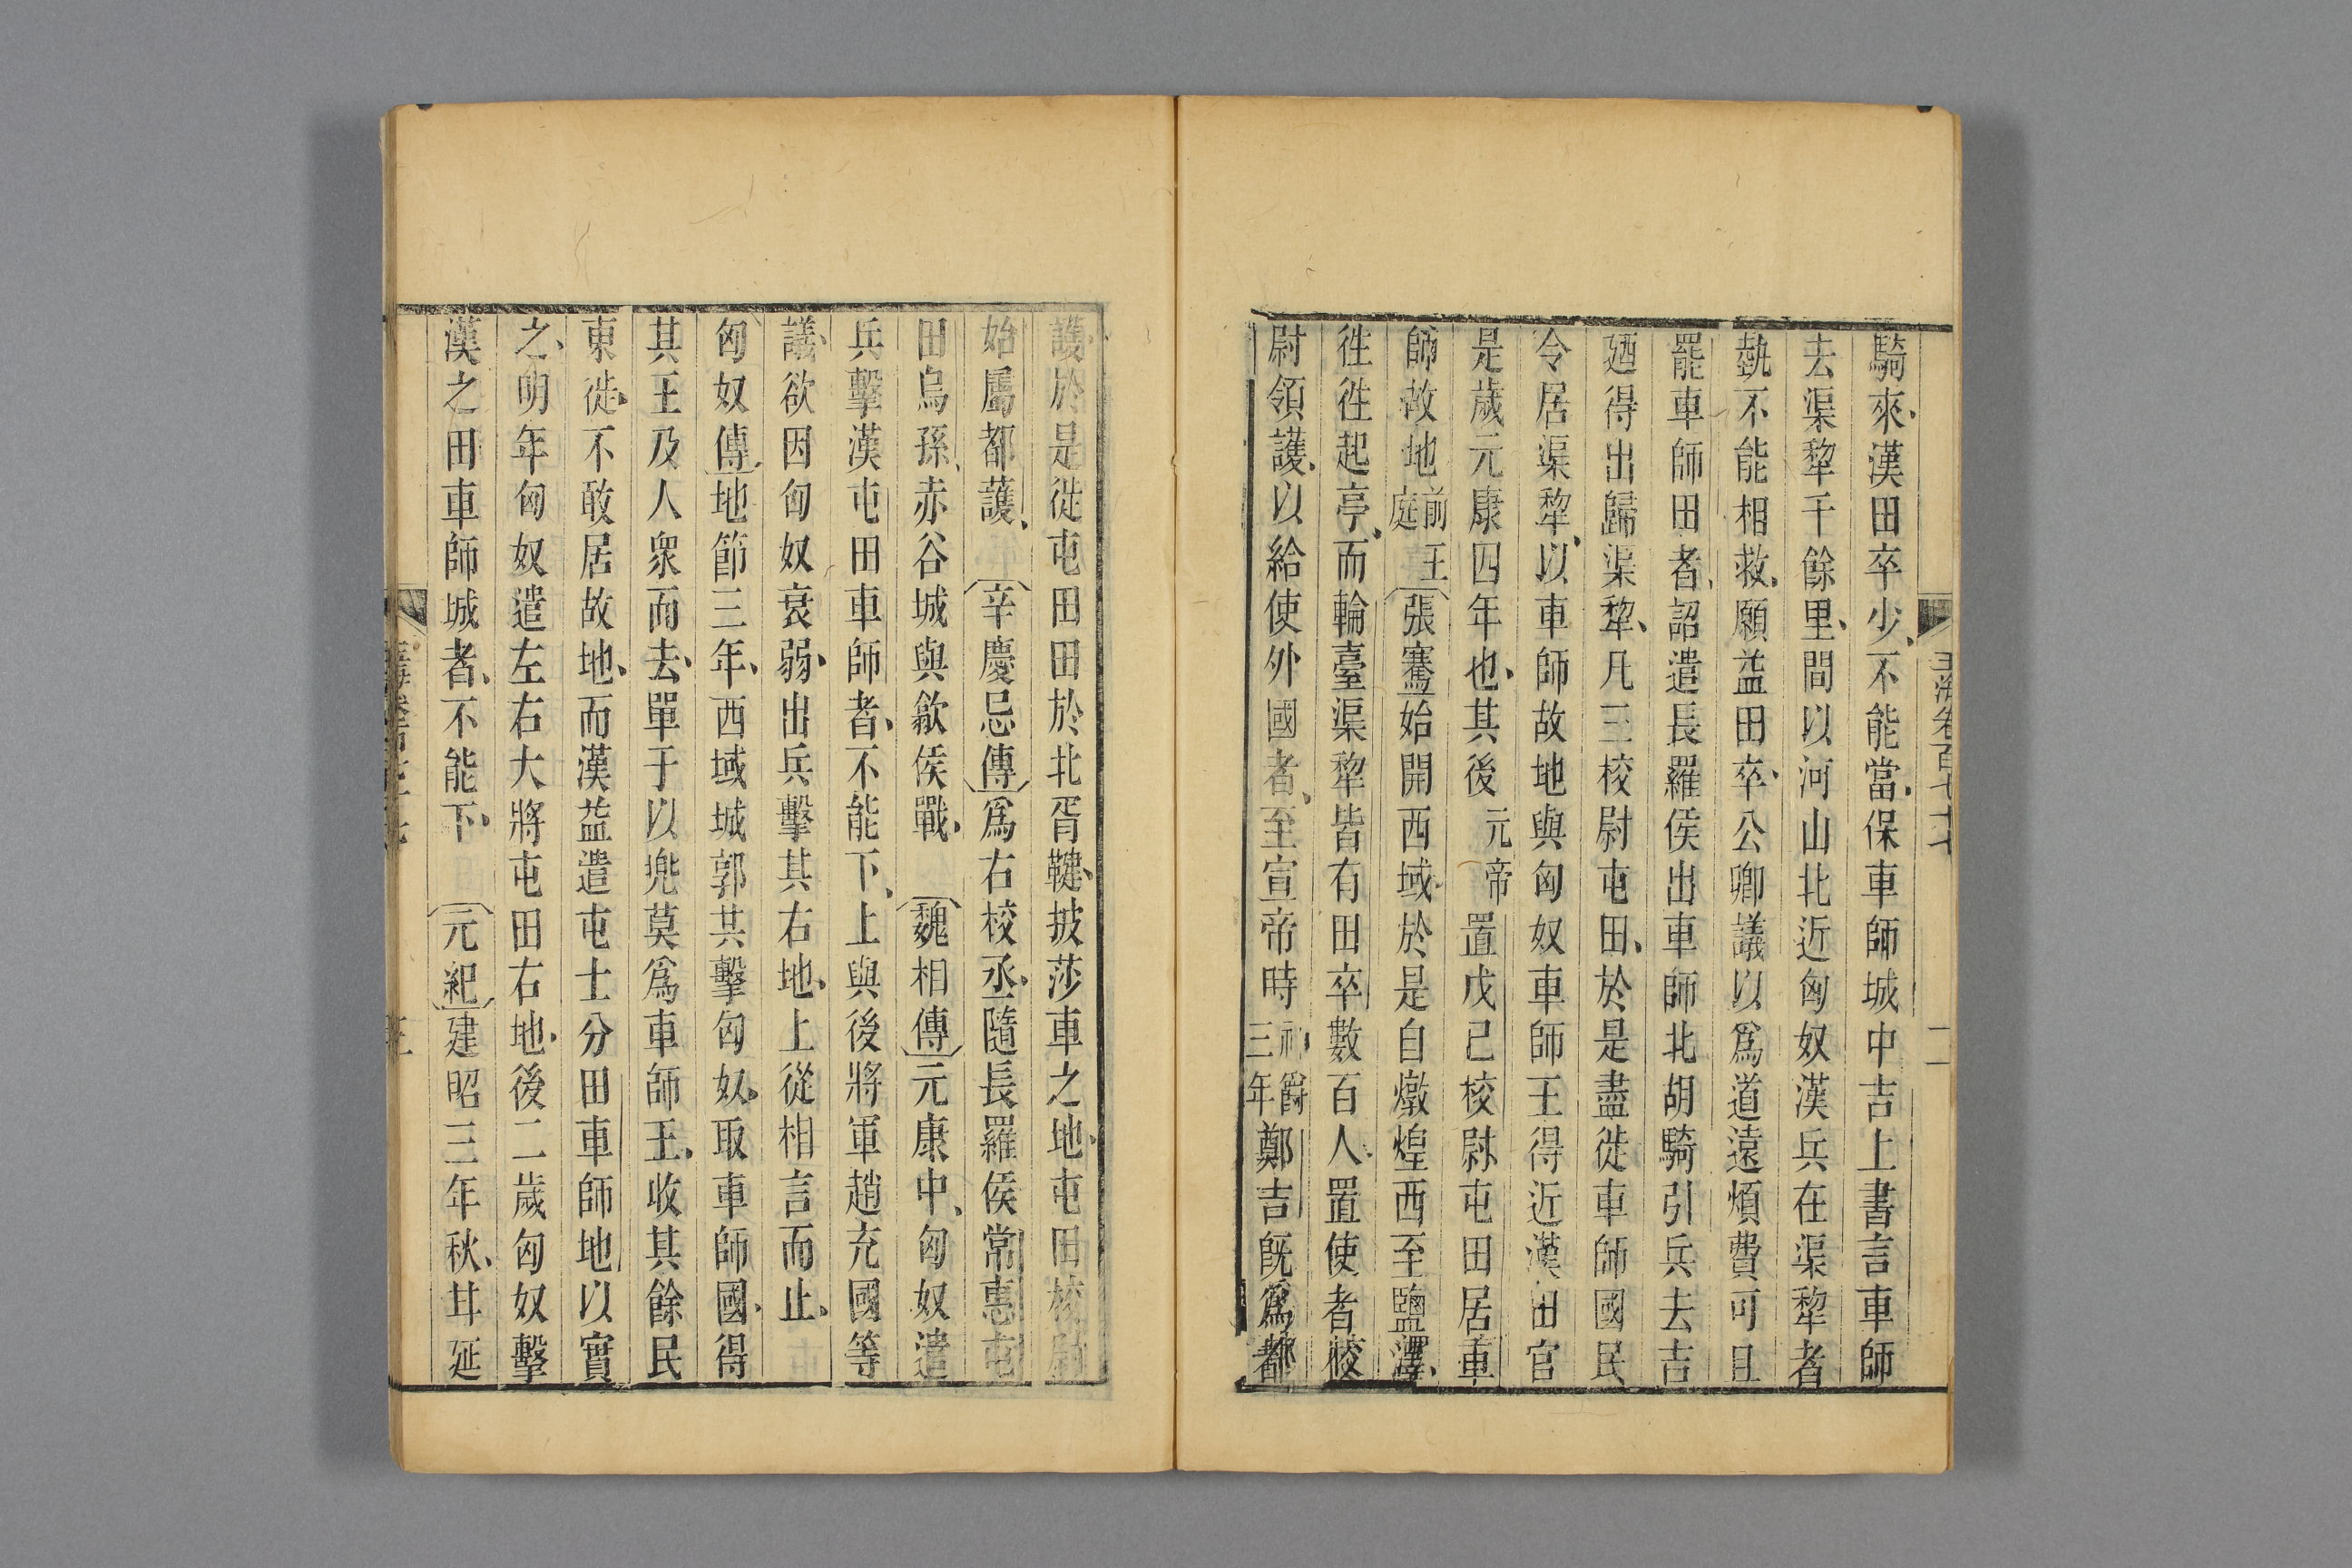 玉海卷百七十七 二
騎來漢田卒少不能當保車師城中吉上書言車師
去渠犂千餘里間以河山北近匈奴漢兵在渠犂者
埶不能相救願益田卒公卿議以爲道遠煩費可且
罷車師田者詔遣長羅侯出車師北胡騎引兵去吉
廼得出歸渠犂凡三校尉屯田於是盡徙車師國民
令居渠犂以車師故地與匈奴車師王得近漢田官
是歲元康四年也其後元帝置戊己校尉屯田居車
師故地前王庭張騫始開西域於是自燉煌西至鹽澤
徃徃起亭而輪臺渠犂皆有田卒數百人置使者校
尉領護以給使外國者至宣帝時神爵三年鄭吉旣爲都
護於是徙屯田田於北胥鞬披莎車之地屯田校尉
始屬都護 辛慶忌傳爲右校丞隨長羅侯常惠屯
田烏孫赤谷城與歙侯戰 魏相傳元康中匈奴遣
兵擊漢屯田車師者不能下上與後將軍趙充國等
議欲因匈奴衰弱出兵擊其右地上從相言而止
匈奴傳地節三年西域城郭共擊匈奴取車師國得
其王及人衆而去單于以兠莫爲車師王收其餘民
東徙不敢居故地而漢益遣屯士分田車師地以實
之明年匈奴遣左右大將屯田右地後二歲匈奴擊
漢之田車師城者不能下 元紀建昭三年秋甘延